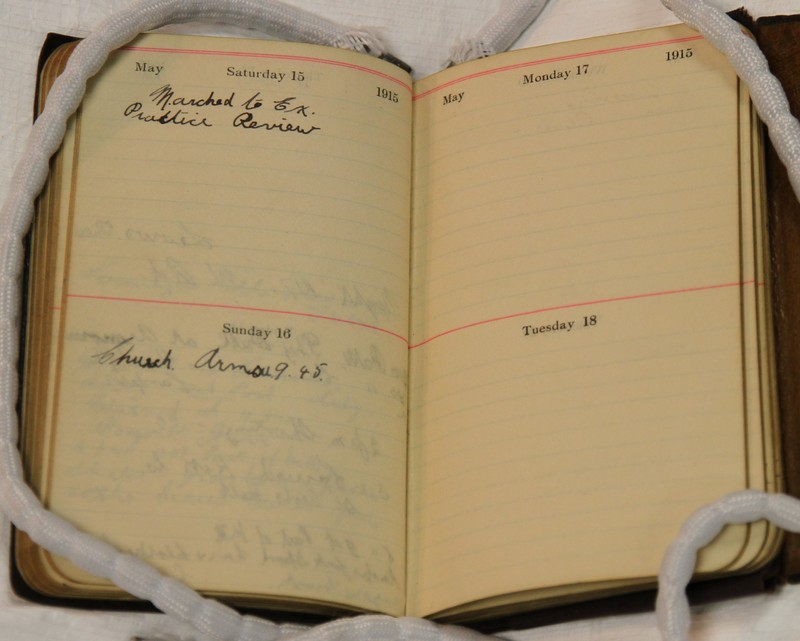 May Saturday 15 1915
Marched to Ex.
Practice Review
Sunday 16
Church. 9.45.
May Monday 17 1915
Tuesday 18